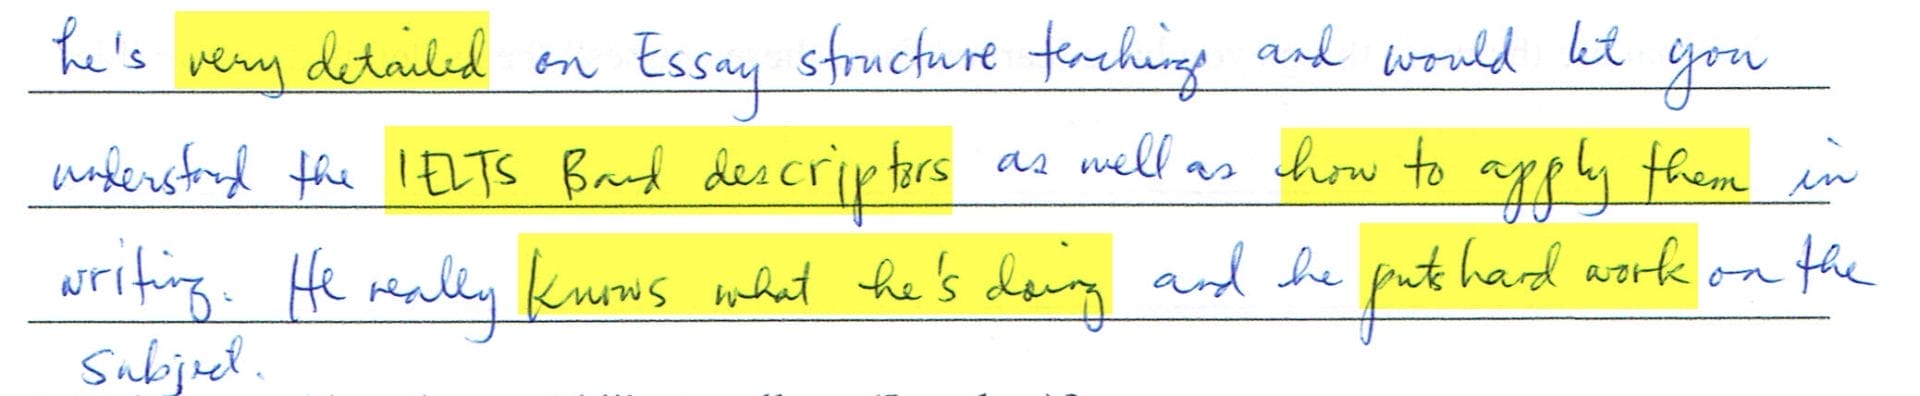 he's very detailed on Essay structure teachings and would let you
understand the IELTS Band descriptors as well as how to apply them in
writing. He really knows what he's doing and he puts hard work on the
subject.